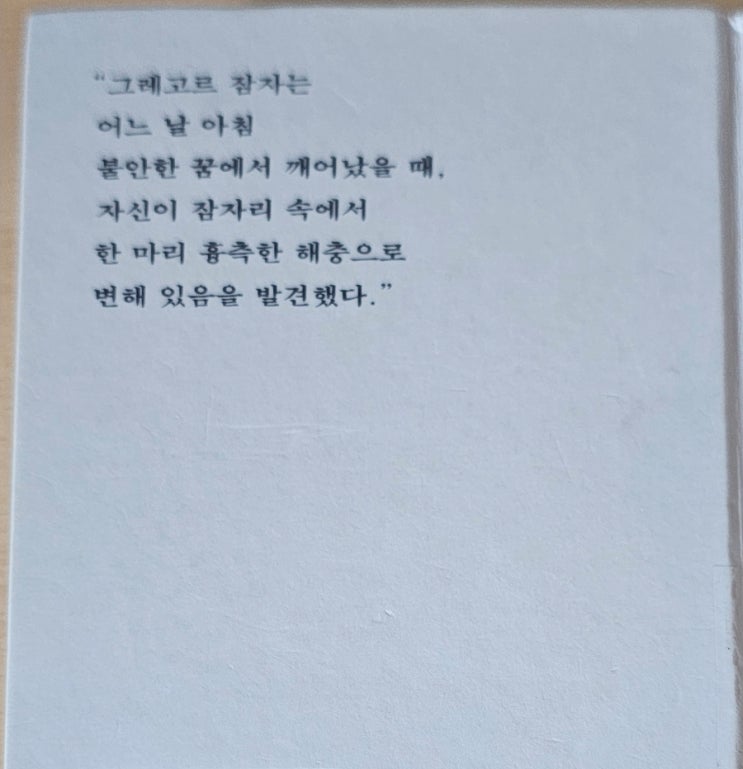 “그레고르 잠자는
어느 날 아침
불안한 꿈에서 깨어났을 때,
자신이 잠자리 속에서
한 마리 흉측한 해충으로
변해 있음을 발견했다.”